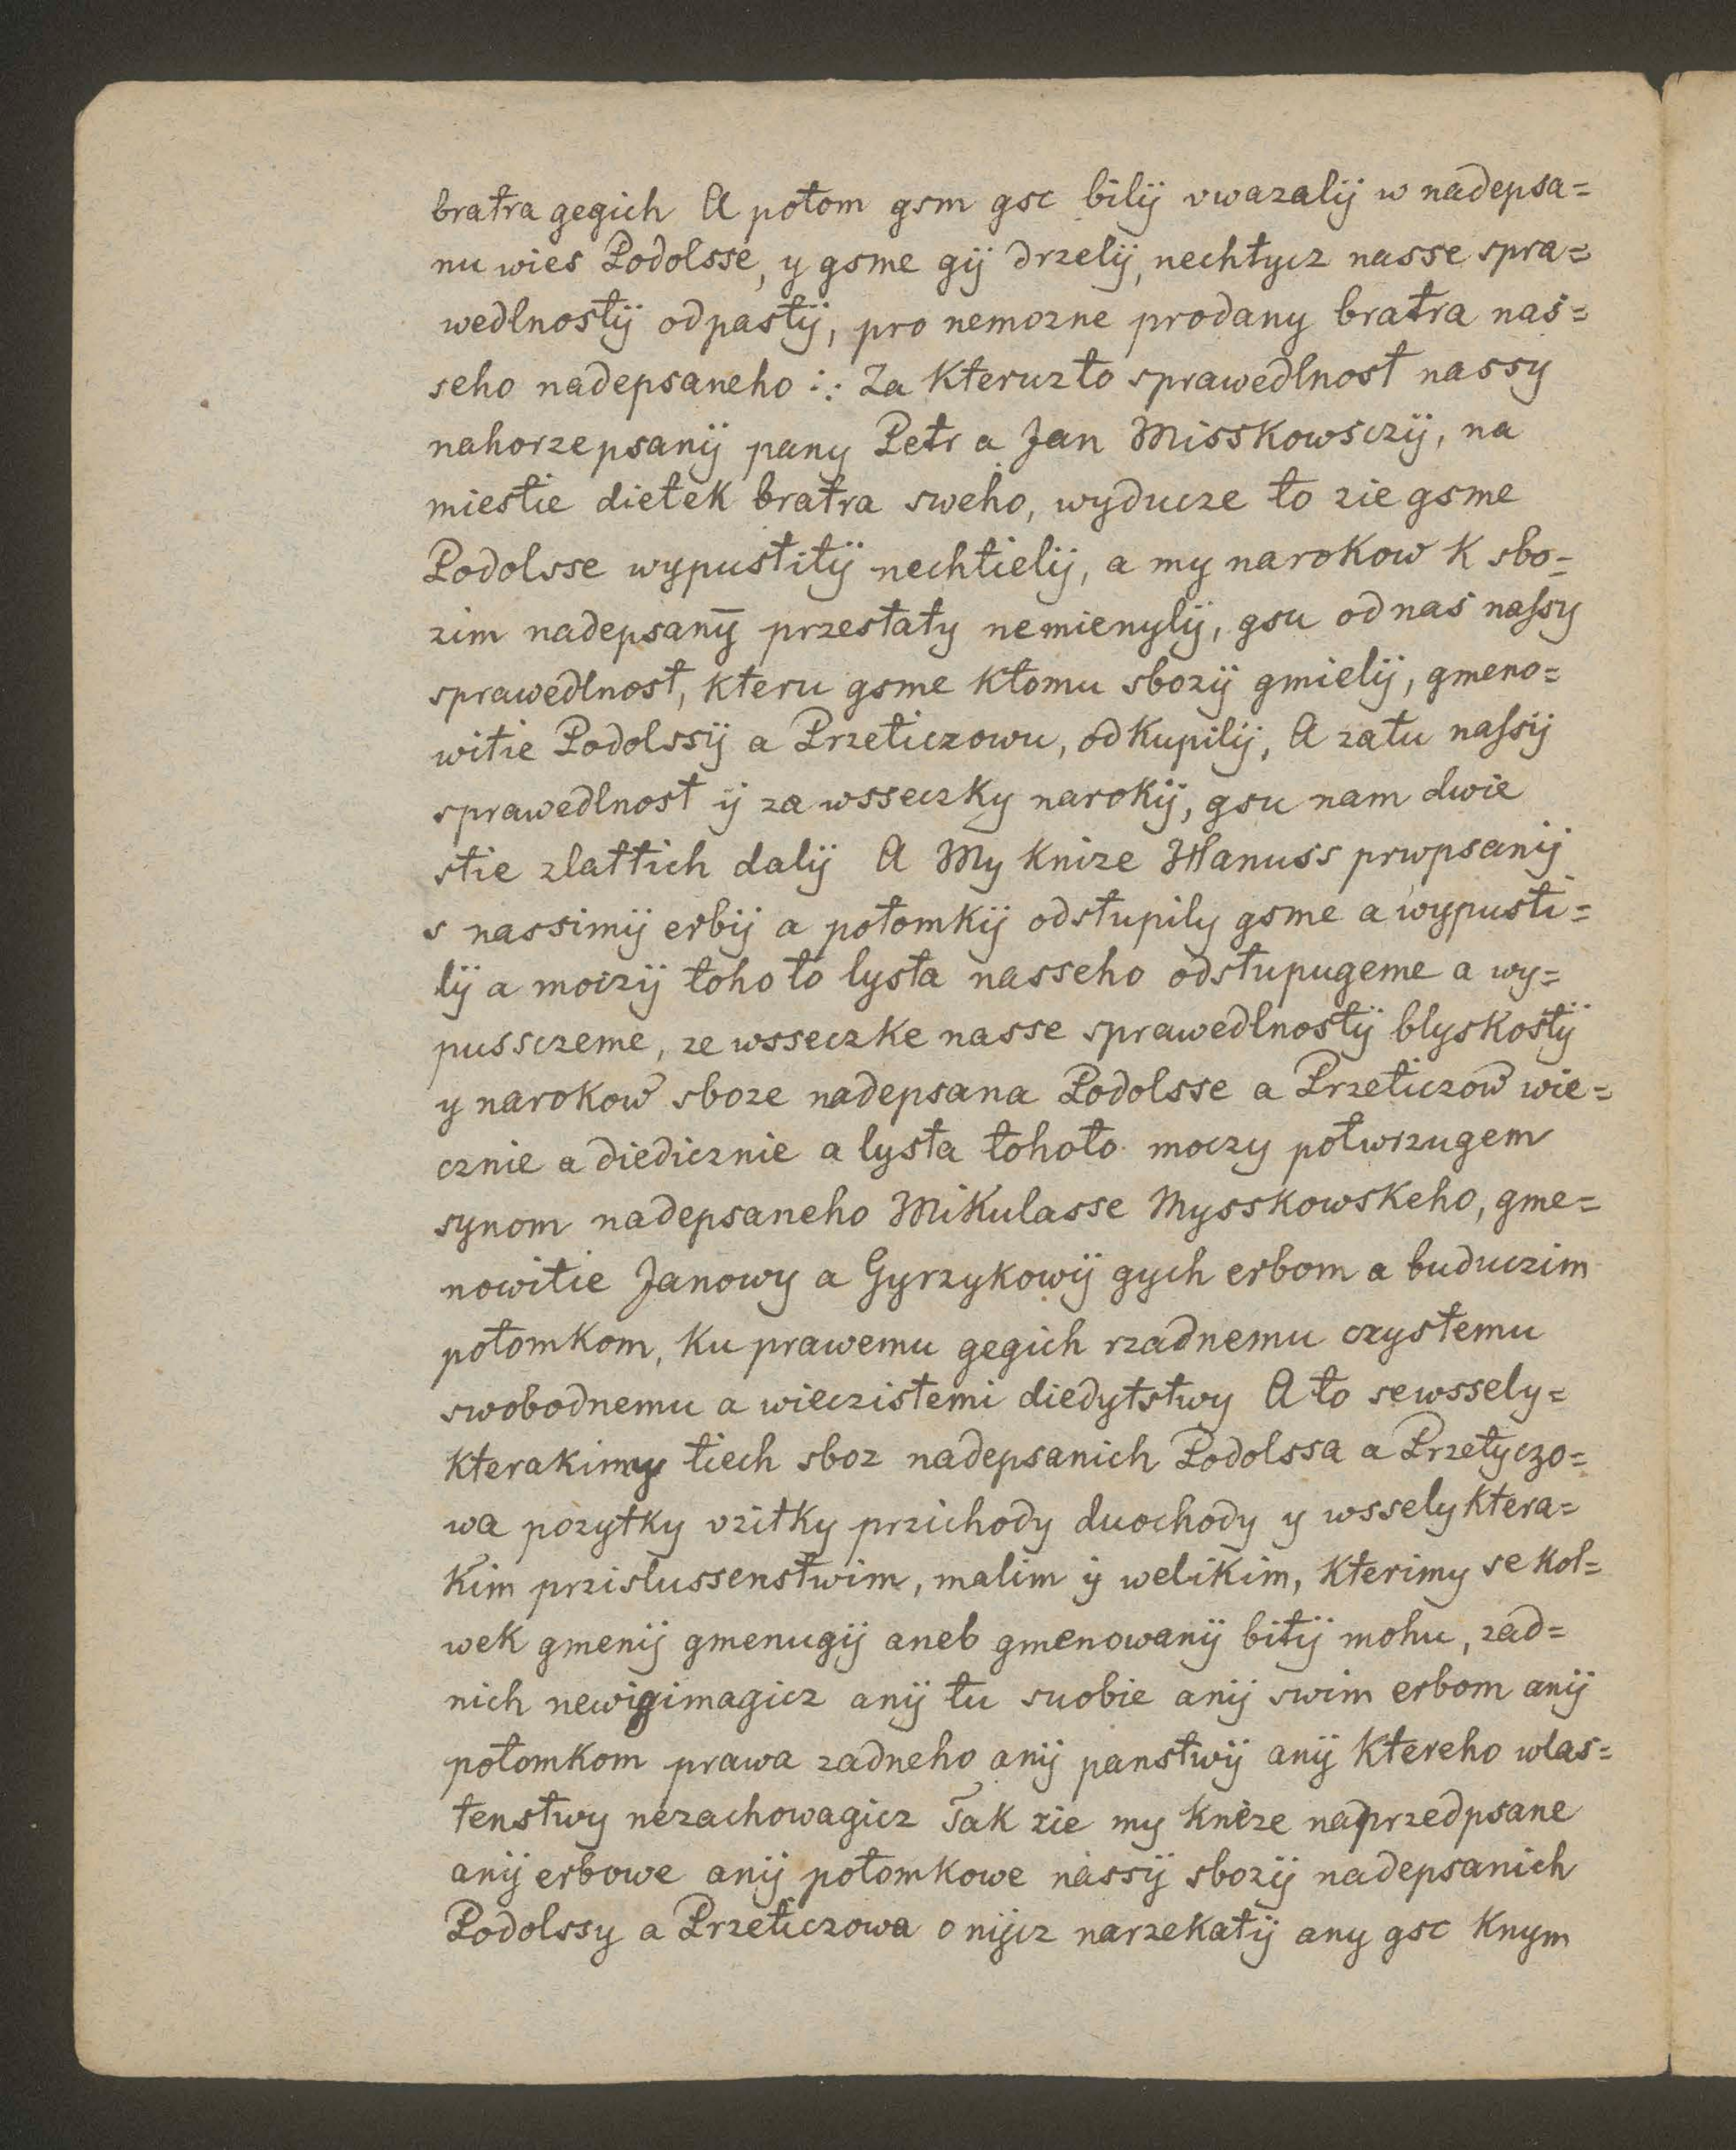 bratra gegich A potom gsm gsc bilij vwazalij w nadepsa=
nu wies Podolsse, y gsme gij drzelij, nechtycz nasse spra=
wedlnostij odpastij, pro nemozne prodany bratra nas=
seho nadepsaneho :: Za kteruzto sprawedlnost nassy
nahorzepsanij pany Petr a Jan Misskowsczij, na
miestie dietek bratra sweho, wyducze to zie gsme
Podolsse wypustitij nechtielij, a my narokow k sbo=
zim nadepsanȳ przestaty nemienylij, gsu od nas naſsy
sprawedlnost, kteru gsme ktomu sbozij gmielij, gmeno=
witie Podolssij a Przeticzowu, odkupilij, A zatu naſsij
sprawedlnost ij za wsseczky narokij, gsu nam dwie
stie zlattich dalij A My knize Hanuss prwpsanij
s nassimij erbij a potomkij odstupily gsme a wypusti=
lij a moczij tohoto lysta nasseho odstupugeme a wy=
pussczeme, ze wsseczke nasse sprawedlnostij blyskostij
y narokow sboze nadepsana Podolsse a Przeticzow wie=
cznie a diedicznie a lysta tohoto moczy potwrzugem
synom nadepsaneho Mikulasse Mysskowskeho, gme=
nowitie Janowy a Gyrzykowij gych erbom a buduczim
potomkom, ku prawemu gegich rzadnemu czystemu
swobodnemu a wieczistemi diedytstwy A to sewssely=
kterakimy tiech sboz nadepsanich Podolssa a Przetyczo=
wa pozytky vzitky przichody duochody y wsselyktera=
kim przislussenstwim, malim ij welikim, kterimy se kol=
wek gmenij gmenugij aneb gmenowanij bitij mohu, zad=
nich newigimagicz anij tu suobie anij swim erbom anij
potomkom prawa zadneho anij panstwij anij ktereho wlas=
tenstwy nezachowagicz Tak zie my kneze naprzedpsane
anij erbowe anij potomkowe nassij sbozij nadepsanich
Podolssy a Przeticzowa o nijcz narzekatij any gsc knym